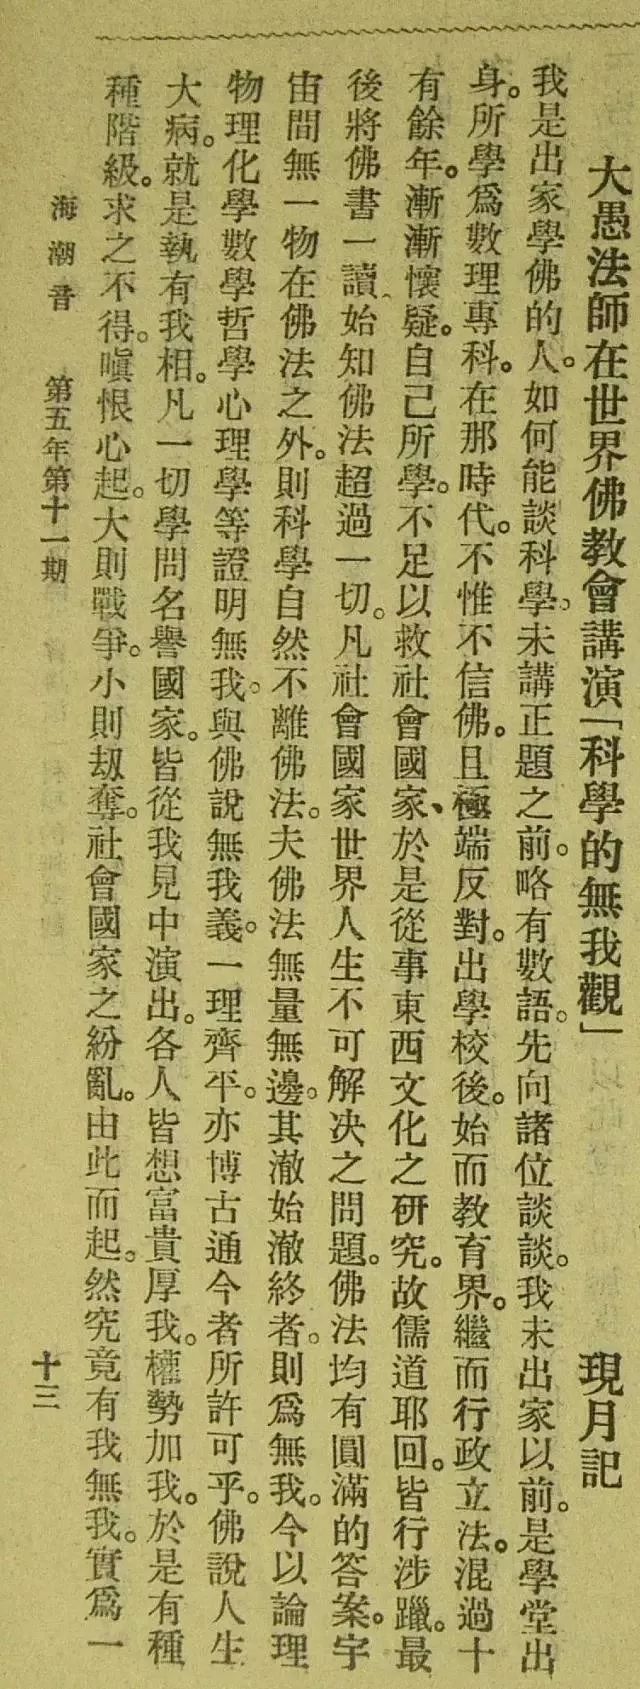 大愚法師在世界佛教會講演「科學的無我觀」
現月記
我是出家學佛的人。如何能談科學。未講正題之前。略有數語。先向諸位談談。我未出家以前。是學堂出
身。所學爲數理專科。在那時代。不惟不信佛。且極端反對。出學校後。始而教育界。繼而行政立法。混過十
有餘年。漸漸懷疑。自己所學。不足以救社會國家、於是從事東西文化之研究。故儒道耶回。皆行涉躐。最
後將佛書一讀、始知佛法超過一切。凡社會國家世界人生不可解决之問題。佛法均有圓滿的答案。宇
宙間無一物在佛法之外。則科學自然不離佛法。夫佛法無量無邊。其澈始澈終者。則爲無我。今以論理
物理化學數學哲學心理學等證明無我。與佛說無我義。一理齊平。亦博古通今者所許可乎。佛說人生
大病。就是執有我相。凡一切學問名譽國家。皆從我見中演出。各人皆想富貴厚我。權勢加我。於是有種
種階級。求之不得。嗔恨心起。大則戰爭。小則刼奪。社會國家之紛亂。由此而起。然究竟有我無我。實爲一
海潮音 第五年第十一期 十三